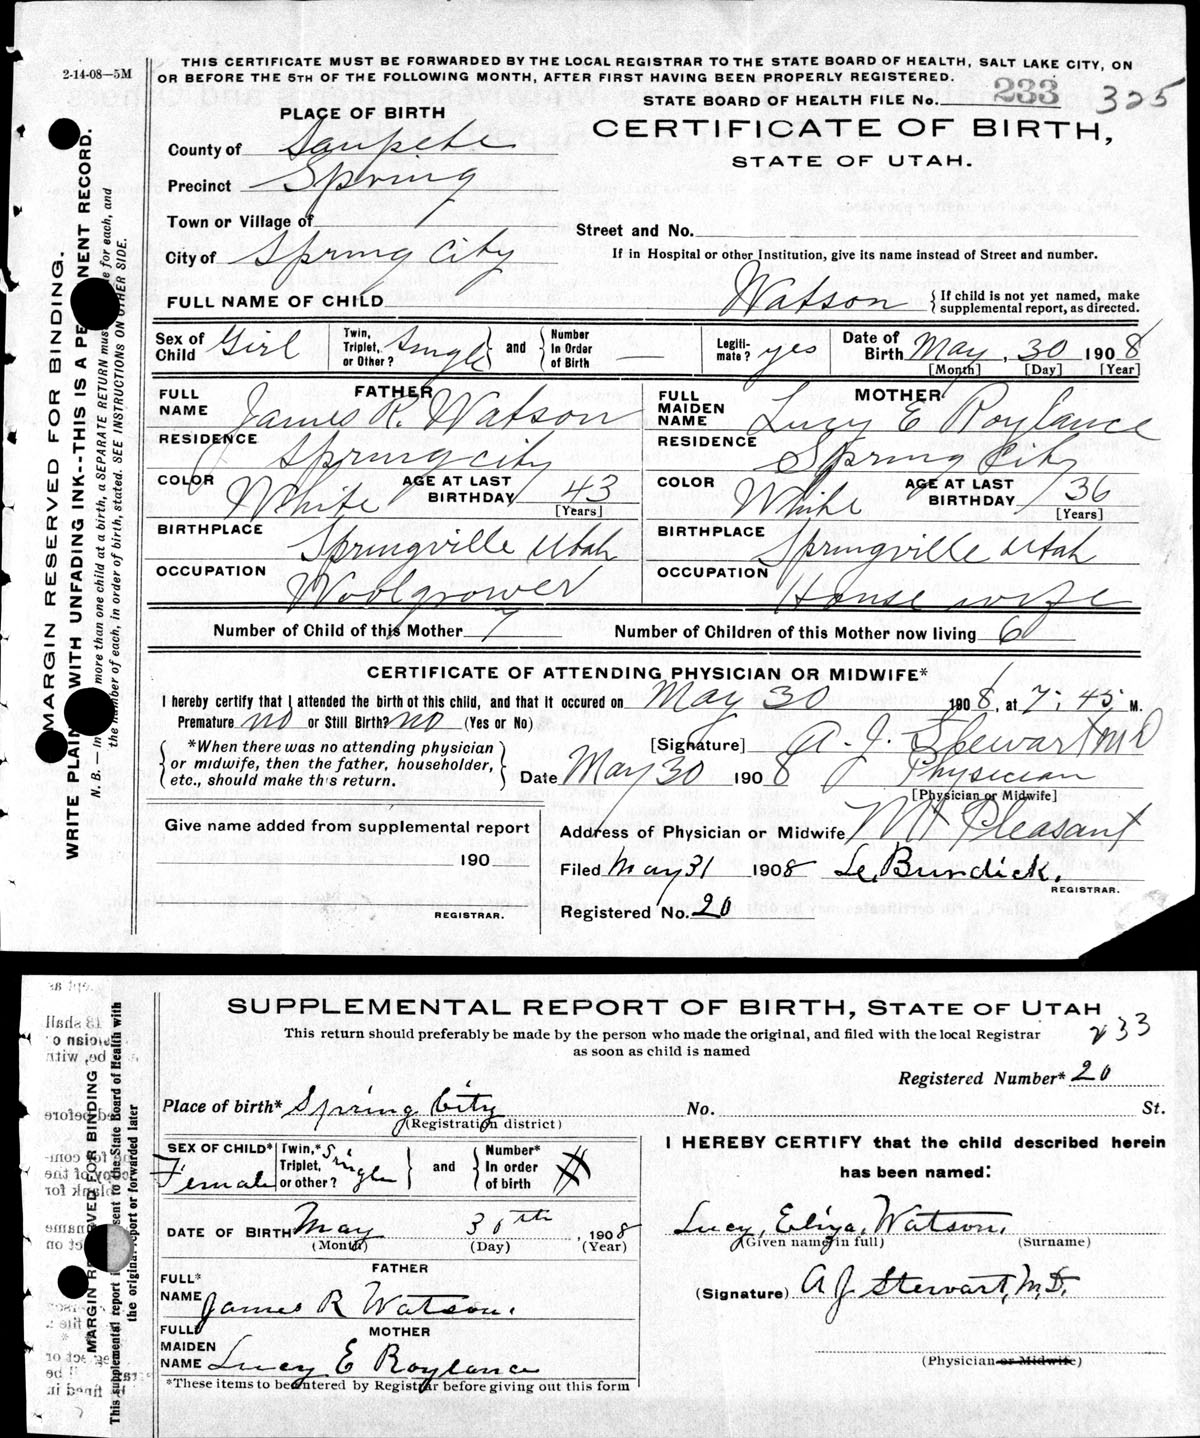 2-14-08—5M
THIS CERTIFICATE MUST BE FORWARDED BY THE LOCAL REGISTRAR TO THE STATE BOARD OF HEALTH, SALT LAKE CITY, ON
OR BEFORE THE 5TH OF THE FOLLOWING MONTH, AFTER FIRST HAVING BEEN PROPERLY REGISTERED.
STATE BOARD OF HEALTH FILE No. 233 325
PLACE OF BIRTH
CERTIFICATE OF BIRTH,
STATE OF UTAH.
County of Sanpete
Precinct Spring
Town or Village of
Street and No.
City of Spring City
If in Hospital or other Institution, give its name instead of Street and number.
FULL NAME OF CHILD Watson { If child is not yet named, make supplemental report, as directed.
Sex of Child Girl Twin, Triplet, or Other? Single } and { Number In Order of Birth — Legiti-mate? yes Date of Birth May, 30 1908
[Month] [Day] [Year]
FATHER MOTHER
FULL NAME James R. Watson FULL MAIDEN NAME Lucy E Roylance
RESIDENCE Spring city RESIDENCE Spring City
COLOR White AGE AT LAST BIRTHDAY 43 [Years] COLOR White AGE AT LAST BIRTHDAY 36 [Years]
BIRTHPLACE Springville Utah BIRTHPLACE Springville Utah
OCCUPATION Woolgrower OCCUPATION House wife
Number of Child of this Mother 7 Number of Children of this Mother now living 6
CERTIFICATE OF ATTENDING PHYSICIAN OR MIDWIFE*
I hereby certify that I attended the birth of this child, and that it occured on May 30 1908, at 7:45 M.
Premature no or Still Birth? no (Yes or No)
{ *When there was no attending physician
or midwife, then the father, householder,
etc., should make this return. }
[Signature] A. J. Stewart MD
Date May 30 1908 Physician
[Physician or Midwife]
Give name added from supplemental report
190
REGISTRAR.
Address of Physician or Midwife Mt Pleasant
Filed May 31 1908 Burdick.
REGISTRAR.
Registered No. 20
MARGIN RESERVED FOR BINDING.
WRITE PLAIN WITH UNFADING INK---THIS IS A PE NENT RECORD.
N. B. — In more than one child at a birth, a SEPARATE RETURN mus e for each, and
the number of each, in order of birth, stated. SEE INSTRUCTIONS ON OTHER SIDE.
SUPPLEMENTAL REPORT OF BIRTH, STATE OF UTAH
This return should preferably be made by the person who made the original, and filed with the local Registrar
as soon as child is named
233
Registered Number* 20
Place of birth* Spring City No. St.
(Registration district)
SEX OF CHILD* Female Twin,* Triplet, or other? Single } and { Number* In order of birth
I HEREBY CERTIFY that the child described herein
has been named:
DATE OF BIRTH May 30th, 1908
(Month) (Day) (Year)
Lucy, Eliza, Watson.
(Given name in full) (Surname)
FATHER
FULL* NAME James R Watson.
(Signature) A J Stewart, M.D.
MOTHER
FULL MAIDEN NAME Lucy E Roylance
(Physician or Midwife)
*These items to be entered by Registrar before giving out this form
MARGIN RE VED FOR BINDING
This supplemental report i sent to the State Board of Health with
the original report or forwarded later